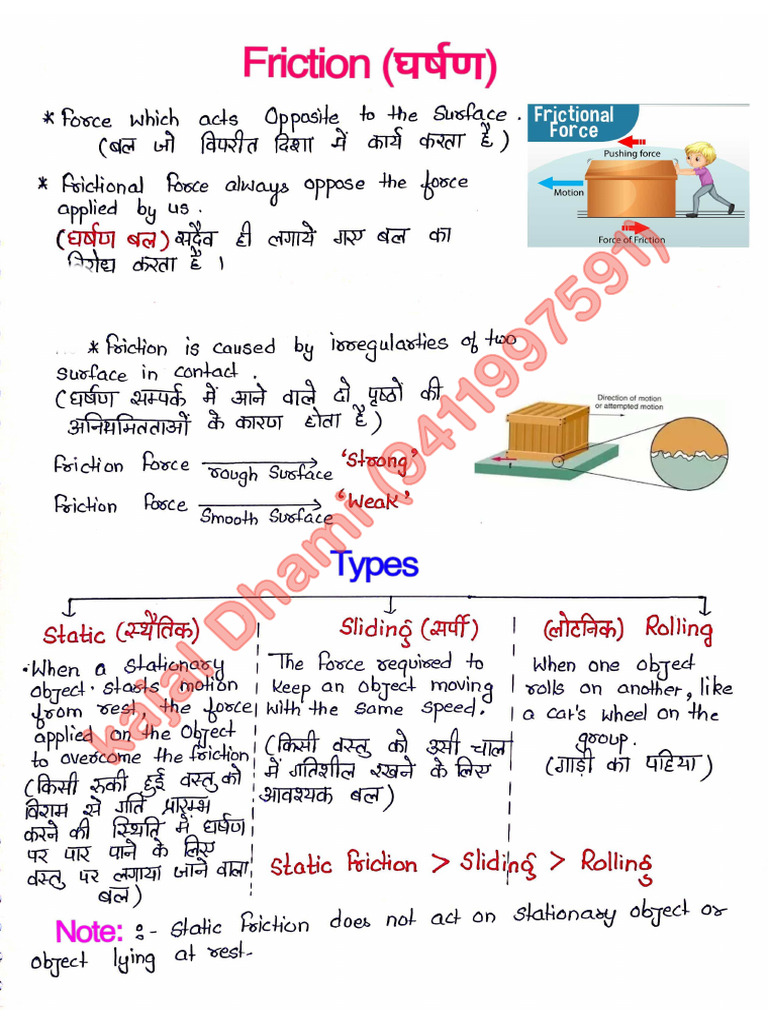 Friction (घर्षण)
* Force which acts Opposite to the Surface.
(बल जो विपरीत दिशा में कार्य करता है)
Frictional
Force
Pushing force
Motion
Force of Friction
* Frictional Force always oppose the force
applied by us.
(घर्षण बल) सदैव ही लगाये गए बल का
विरोध करता है ।
... * Friction is caused by irregularties of two
surface in contact.
(घर्षण सम्पर्क में आने वाले दो पृष्ठों की
अनियमितताओं के कारण होता है)
Direction of motion
or attempted motion
f
Friction Force rough Surface "Strong"
Friction Force Smooth Surface "Weak"
Types
Static (स्थैतिक)
• When a stationary
object starts motion
from rest, the force
applied on the Object
to overcome the friction
(किसी रुकी हुई वस्तु को
विराम से गति प्रारम्भ
करने की स्थिति में घर्षण
पर पार पाने के लिए
वस्तु पर लगाया जाने वाला
बल)
Sliding (सर्पी)
The force required to
keep an object moving
with the same speed.
(किसी वस्तु को उसी चाल
में गतिशील रखने के लिए
आवश्यक बल)
(लोटनिक) Rolling
When one object
rolls on another, like
a car's wheel on the
group.
(गाड़ी का पहिया)
Static Friction > Sliding > Rolling
Note: :- Static Friction does not act on stationary object or
object lying at rest-
kajal Dhami (9411997591)